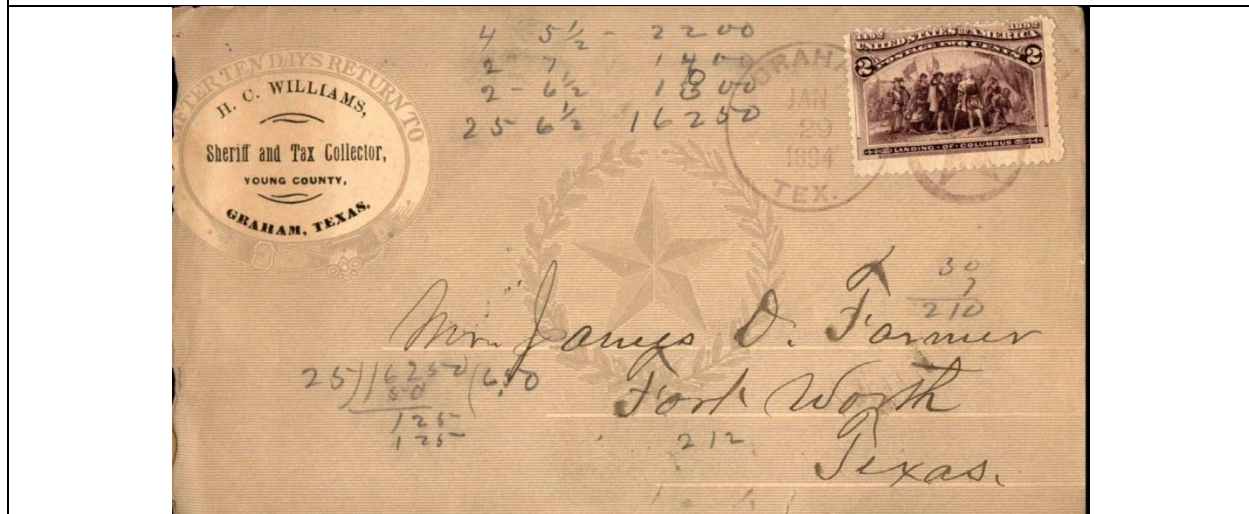 AFTER TEN DAYS RETURN TO
H. C. WILLIAMS,
Sheriff and Tax Collector,
YOUNG COUNTY,
GRAHAM, TEXAS.
4 5½ - 2200
2 7 1400
2 - 6½ 1300
25 6½ 16250
GRAHAM
JAN
29
1894
TEX.
1492 1892
UNITED STATES OF AMERICA
POSTAGE TWO CENTS
2 2
LANDING OF COLUMBUS
30
7
210
Mr. James D. Farmer
Fort Worth
Texas.
25)16250(650
125
125
212